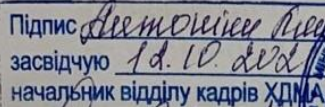 Підпис
засвідчую 12.10.202
начальник відділу кадрів ХДМА